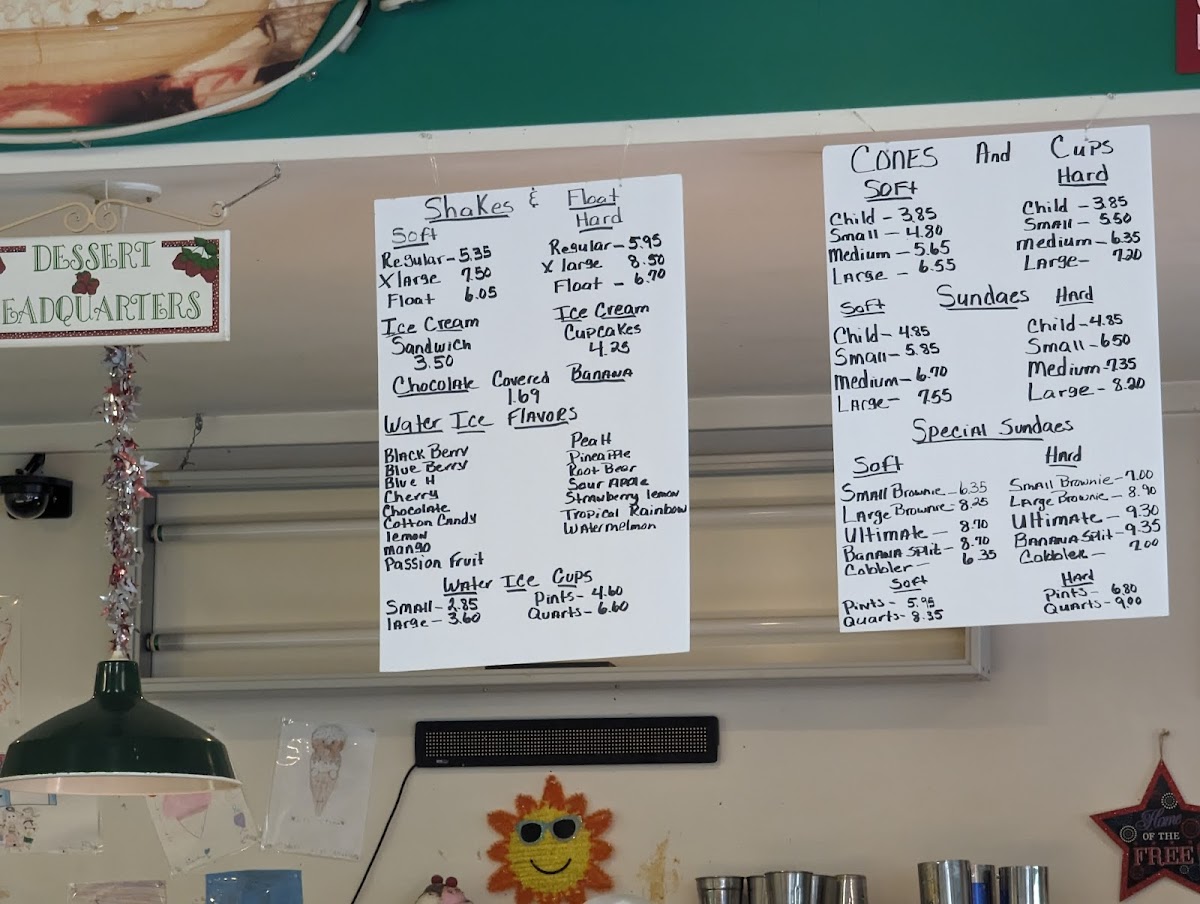 DESSERT
EADQUARTERS
Shakes & Float
Soft
Regular - 5.35
X large 7.50
Float 6.05
Hard
Regular - 5.95
X large 8.50
Float - 6.70
Ice Cream
Sandwich
3.50
Ice Cream
Cupcakes
4.25
Chocolate Covered Banana
1.69
Water Ice Flavors
Black Berry
Blue Berry
Blue H
Cherry
Chocolate
Cotton Candy
lemon
mango
Passion Fruit
PeaH
Pineapple
Root Beer
Sour Apple
Strawberry lemon
Tropical Rainbow
Watermelmon
Water Ice Cups
Small - 2.85
large - 3.60
Pints - 4.60
Quarts - 6.60
Cones And Cups
Soft
Child - 3.85
Small - 4.80
Medium - 5.65
Large - 6.55
Hard
Child - 3.85
Small - 5.50
medium - 6.35
Large - 7.20
Sundaes
Soft
Child - 4.85
Small - 5.85
Medium - 6.70
Large - 7.55
Hard
Child - 4.85
Small - 6.50
Medium - 7.35
Large - 8.20
Special Sundaes
Soft
Small Brownie - 6.35
Large Brownie - 8.25
Ultimate - 8.70
Banana Split - 8.70
Cobbler - 6.35
Hard
Small Brownie - 7.00
Large Brownie - 8.90
Ultimate - 9.30
Banana Split - 9.35
Cobbler - 7.00
Soft
Pints - 5.95
Quarts - 8.35
Hard
Pints - 6.80
Quarts - 9.00
Home
OF THE
FREE